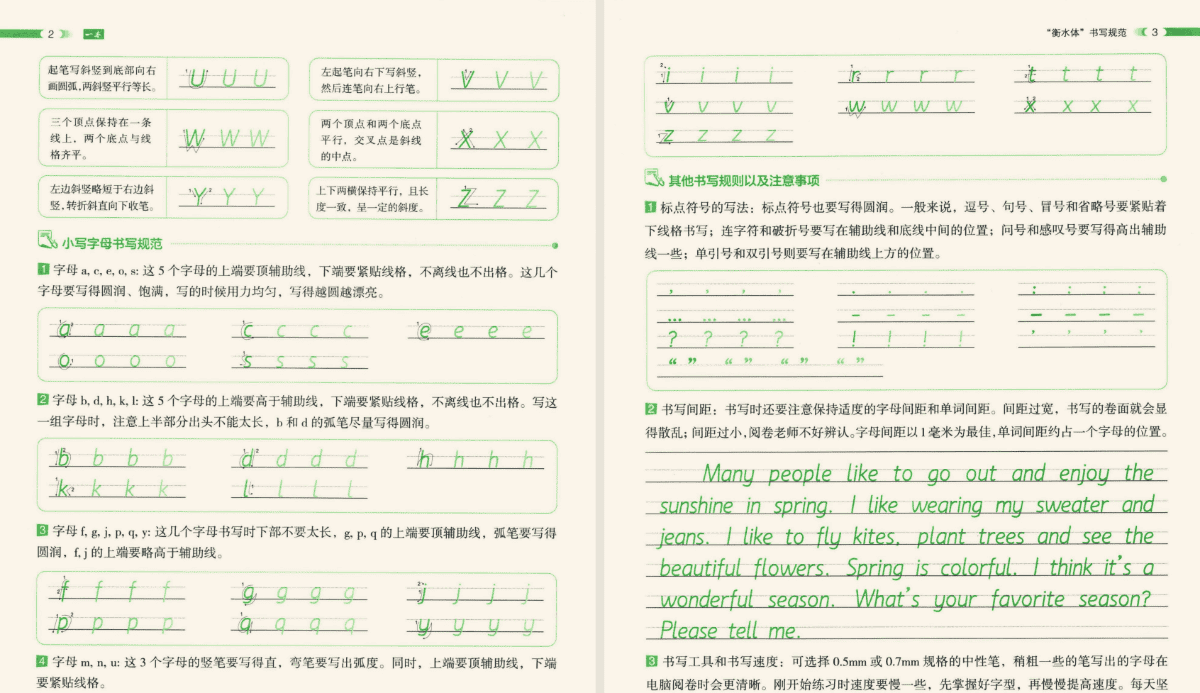 2 一本
起笔写斜竖到底部向右
画圆弧,两斜竖平行等长。
U U U
左起笔向右下写斜竖，
然后连笔向右上行笔。
V V V
三个顶点保持在一条
线上，两个底点与线
格齐平。
W W W
两个顶点和两个底点
平行，交叉点是斜线
的中点。
X X X
左边斜竖略短于右边斜
竖,转折斜直向下收笔。
Y Y Y
上下两横保持平行，且长
度一致，呈一定的斜度。
Z Z Z
小写字母书写规范
1 字母 a, c, e, o, s: 这 5 个字母的上端要顶辅助线，下端要紧贴线格，不离线也不出格。这几个
字母要写得圆润、饱满，写的时候用力均匀，写得越圆越漂亮。
a a a a c c c c e e e e
o o o o s s s s
2 字母 b, d, h, k, l: 这 5 个字母的上端要高于辅助线，下端要紧贴线格，不离线也不出格。写这
一组字母时，注意上半部分出头不能太长，b 和 d 的弧笔尽量写得圆润。
b b b b d d d d h h h h
k k k k l l l l
3 字母 f, g, j, p, q, y: 这几个字母书写时下部不要太长，g, p, q 的上端要顶辅助线，弧笔要写得
圆润，f, j 的上端要略高于辅助线。
f f f f g g g g j j j j
p p p p q q q q y y y y
4 字母 m, n, u: 这 3 个字母的竖笔要写得直，弯笔要写出弧度。同时，上端要顶辅助线，下端
要紧贴线格。
“衡水体”书写规范 3
i i i i r r r r t t t t
v v v v w w w w x x x x
z z z z
其他书写规则以及注意事项
1 标点符号的写法：标点符号也要写得圆润。一般来说，逗号、句号、冒号和省略号要紧贴着
下线格书写；连字符和破折号要写在辅助线和底线中间的位置；问号和感叹号要写得高出辅助
线一些；单引号和双引号则要写在辅助线上方的位置。
, , , , . . . . : : : :
... ... ... ... - - - - — — — —
? ? ? ? ! ! ! ! ’ ’ ’ ’
“ ” “ ” “ ” “ ”
2 书写间距：书写时还要注意保持适度的字母间距和单词间距。间距过宽，书写的卷面就会显
得散乱；间距过小,阅卷老师不好辨认。字母间距以1毫米为最佳,单词间距约占一个字母的位置。
Many people like to go out and enjoy the
sunshine in spring. I like wearing my sweater and
jeans. I like to fly kites, plant trees and see the
beautiful flowers. Spring is colorful. I think it’s a
wonderful season. What’s your favorite season?
Please tell me.
3 书写工具和书写速度：可选择 0.5mm 或 0.7mm 规格的中性笔，稍粗一些的笔写出的字母在
电脑阅卷时会更清晰。刚开始练习时速度要慢一些，先掌握好字型，再慢慢提高速度。每天坚